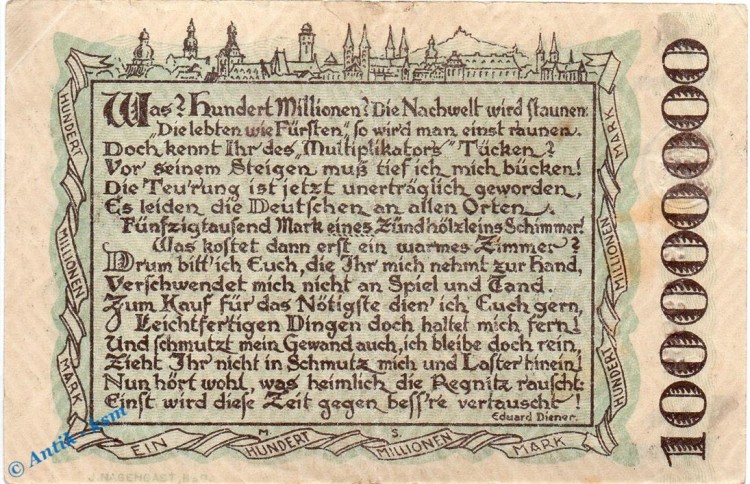 Was? Hundert Millionen? Die Nachwelt wird staunen:
"Die lebten wie Fürsten" so wird man einst raunen.
Doch kennt Ihr des "Multiplikators" Tücken?
Vor seinem Steigen muß tief ich mich bücken!
Die Teu'rung ist jetzt unerträglich geworden,
Es leiden die Deutschen an allen Orten.
Fünfzigtausend Mark eines Zündhölzleins Schimmer!
Was kostet dann erst ein warmes Zimmer?
Drum bitt' ich Euch, die Ihr mich nehmt zur Hand,
Verschwendet mich nicht an Spiel und Tand.
Zum Kauf für das Nötigste dien' ich Euch gern,
Leichtfertigen Dingen doch haltet mich fern!
Und schmutzt mein Gewand auch, ich bleibe doch rein,
Zieht Ihr nicht in Schmutz mich und Laster hinein!
Nun hört wohl, was heimlich die Regnitz rauscht:
Einst wird diese Zeit gegen bess're vertauscht!
Eduard Diener.
HUNDERT MILLIONEN MARK
MARK MILLIONEN HUNDERT
M. S.
EIN HUNDERT MILLIONEN MARK
100000000
J. NAGENGAST, 
© Antik - ksm